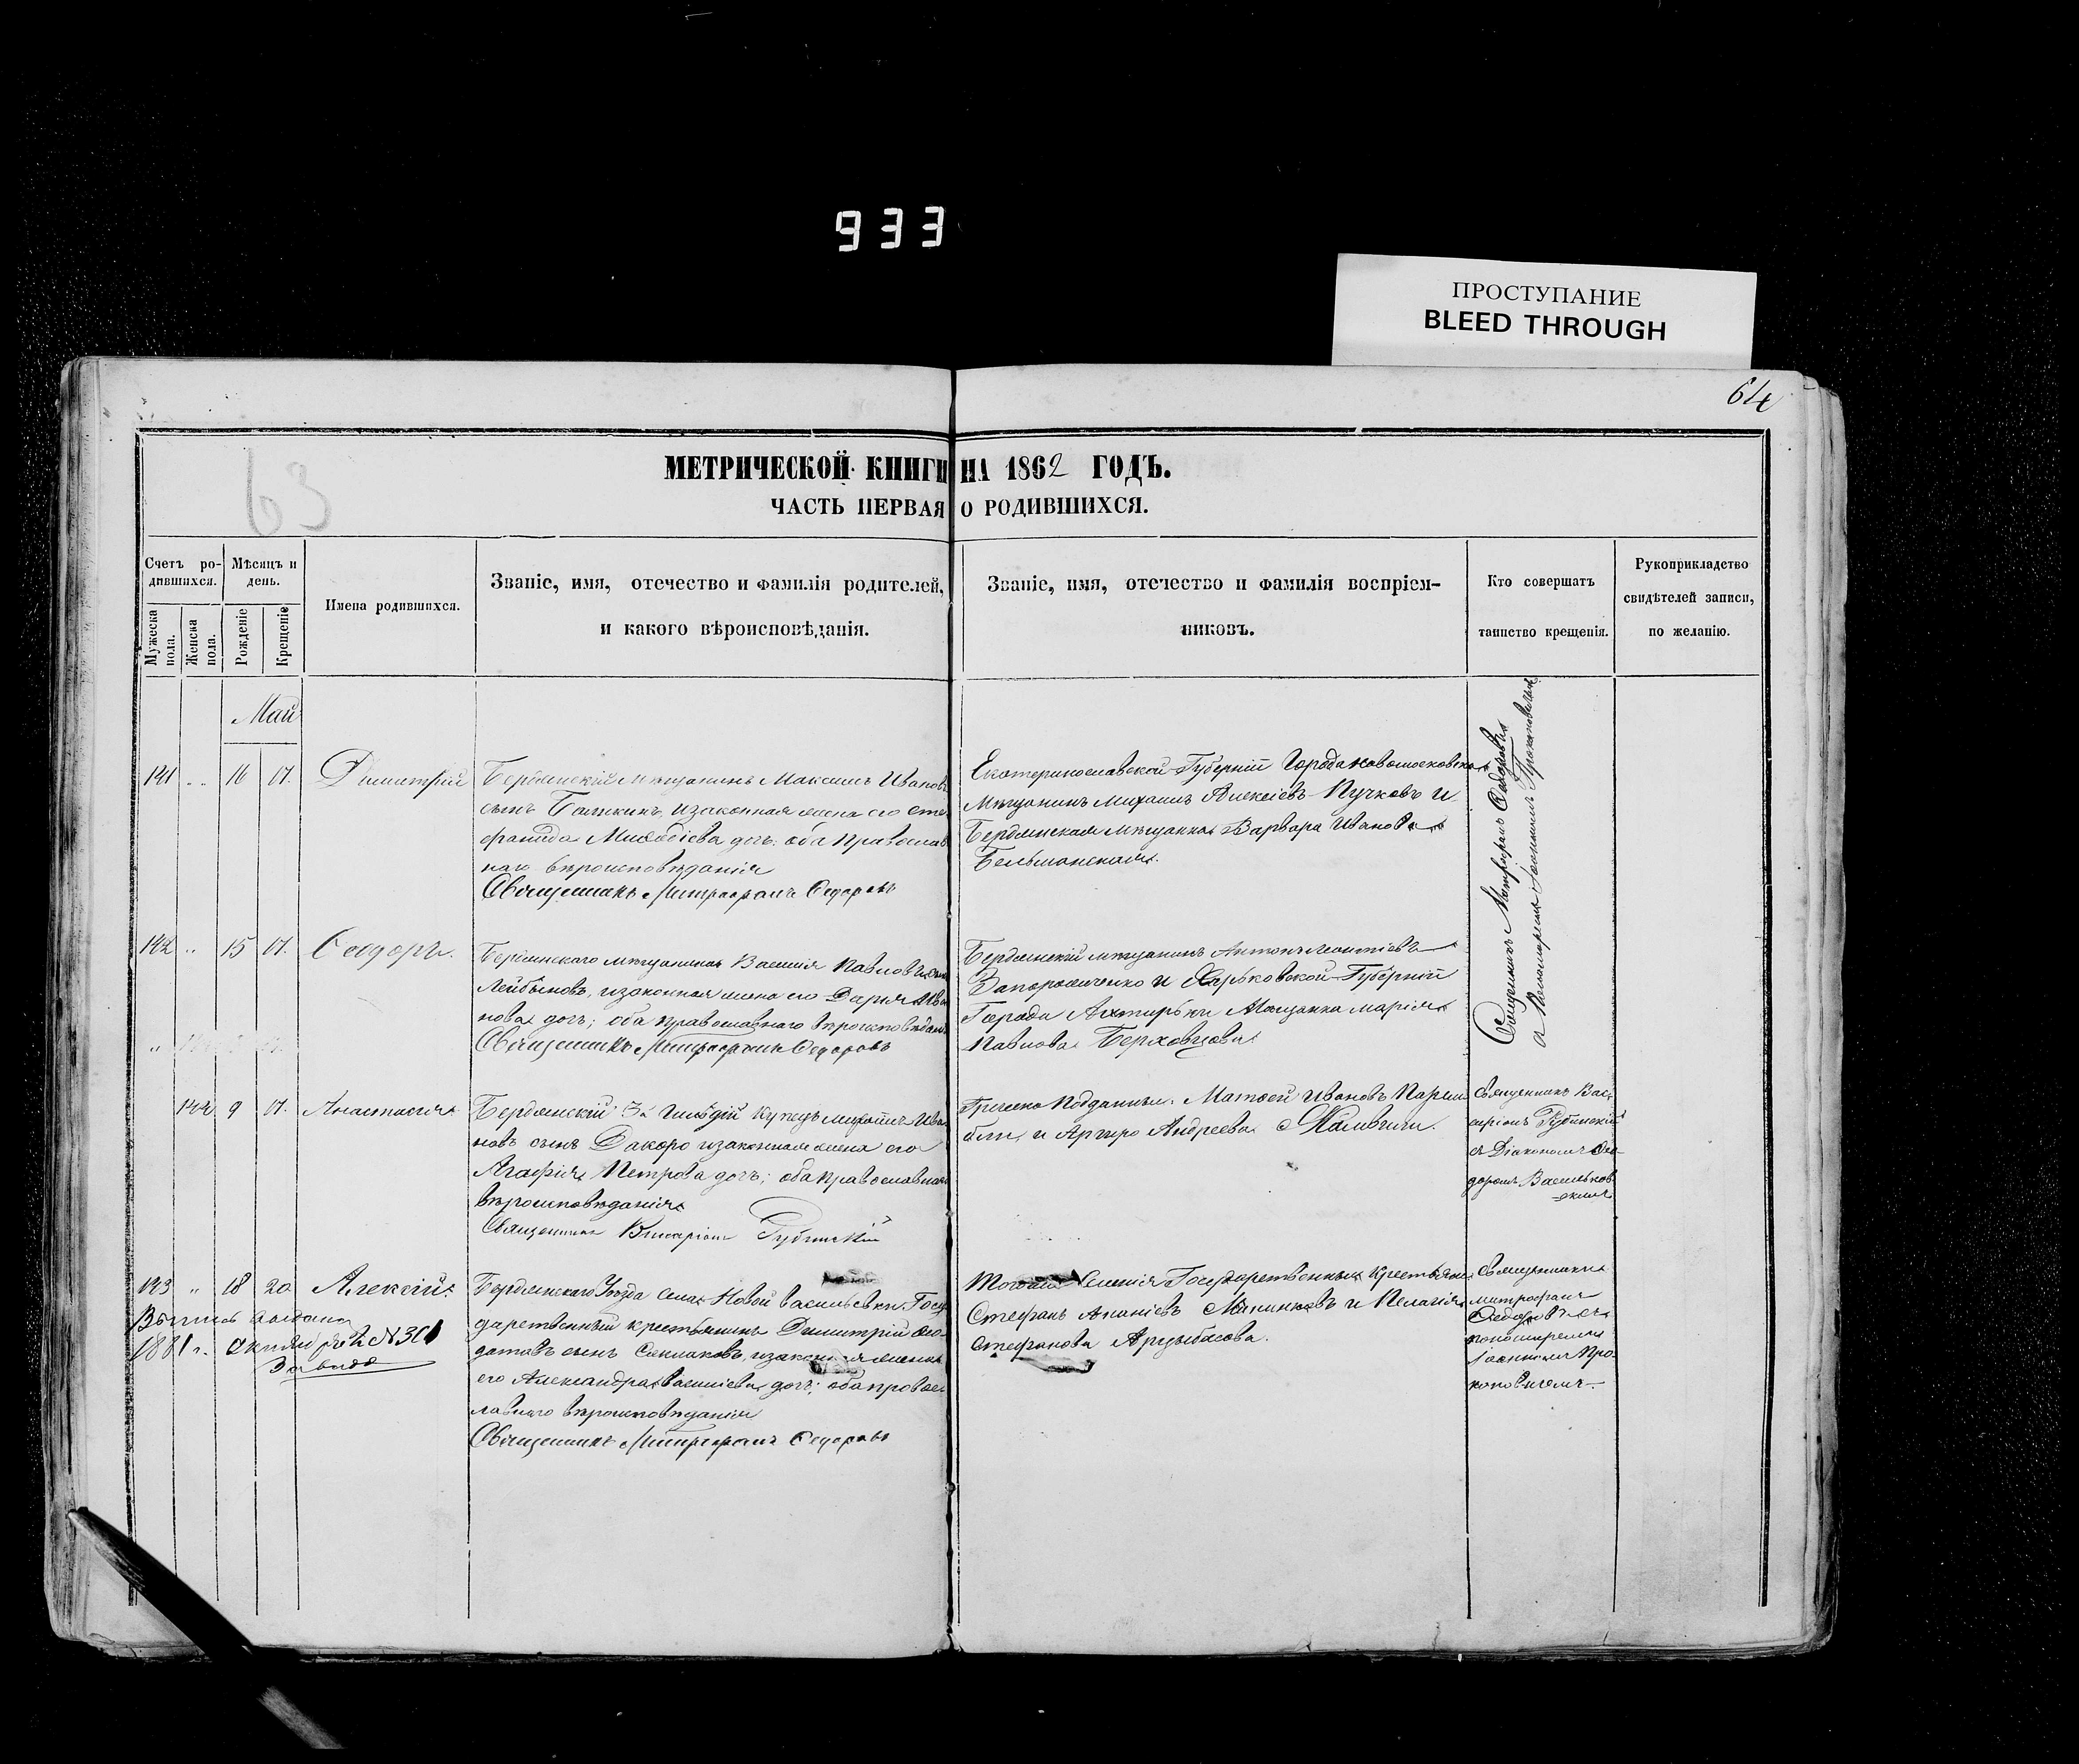 933
ПРОСТУПАНИЕ
BLEED THROUGH
64
63
МЕТРИЧЕСКОЙ КНИГИ НА 1862 ГОДЪ.
ЧАСТЬ ПЕРВАЯ О РОДИВШИХСЯ.
Счетъ ро-
дившихся.
Мужеска
пола.
Женска
пола.
Мѣсяцъ и
день.
Рожденіе
Крещеніе
Имена родившихся.
Званіе, имя, отечество и фамилія родителей,
и какого вѣроисповѣданія.
Званіе, имя, отечество и фамилія воспріем-
никовъ.
Кто совершатъ
таинство крещенія.
Рукоприкладство
свидѣтелей записи,
по желанію.
Май
141 16 17. Димитрій
Бердянскій мѣщанинъ Максимъ Ивановъ
сынъ и законная жена его Сте
фанида дочь: оба православ
наго вѣроисповѣданія
Священникъ Митрофанъ Федоровъ
Екатеринославской Губерніи Города Новомосковска
Мѣщанинъ Михаилъ Алексіевъ Пучковъ и
Бердянская мѣщанка Варвара Иванова
Бельманская.
Священникъ Митрофанъ Федоровъ
съ Пономаремъ Іоанномъ Прокоповичемъ
142 15 17. Феодоръ.
Бердянскаго мѣщанина Василія Павлова
и законная жена его Дарья Ива
нова дочь; оба православнаго вѣроисповѣданія
Священникъ Митрофанъ Федоровъ
Бердянскій мѣщанинъ Антонъ Леонтіевъ
Запорожченко и Харьковской Губерніи
Города Ахтырки Мѣщанка Марія
Павлова
142 9 17. Анастасія
Бердянскій 3й Гильдіи Купецъ Михаилъ Ива
новъ сынъ Дакоро и законная жена его
Агафія Петрова дочь; оба православнаго
вѣроисповѣданія
Священникъ Виссаріонъ Губинскій
Греческо Подданные. Матвей Ивановъ
и Аргиро Андреева
Священникъ Вис
саріонъ Губинскій
съ Діакономъ Фео
доромъ Васильков
скимъ
143 18 20 Алексій.
Выпись выдана
1881 г. Октября 2 № 301
Бердянскаго Уѣзда села Новой Васильевки Госу
дарственный крестьянинъ Димитрій Фео
сынъ и законная жена
его Александра Василіева дочь; оба правос
лавнаго вѣроисповѣданія
Священникъ Митрофанъ Федоровъ
Тогоже Селенія Государственный крестьянинъ
Стефанъ Ананіевъ и Пелагія
Стефанова Арцыбасова.
Священникъ
Митрофанъ
Федоровъ съ
пономаремъ
Іоанномъ Про
коповичемъ.